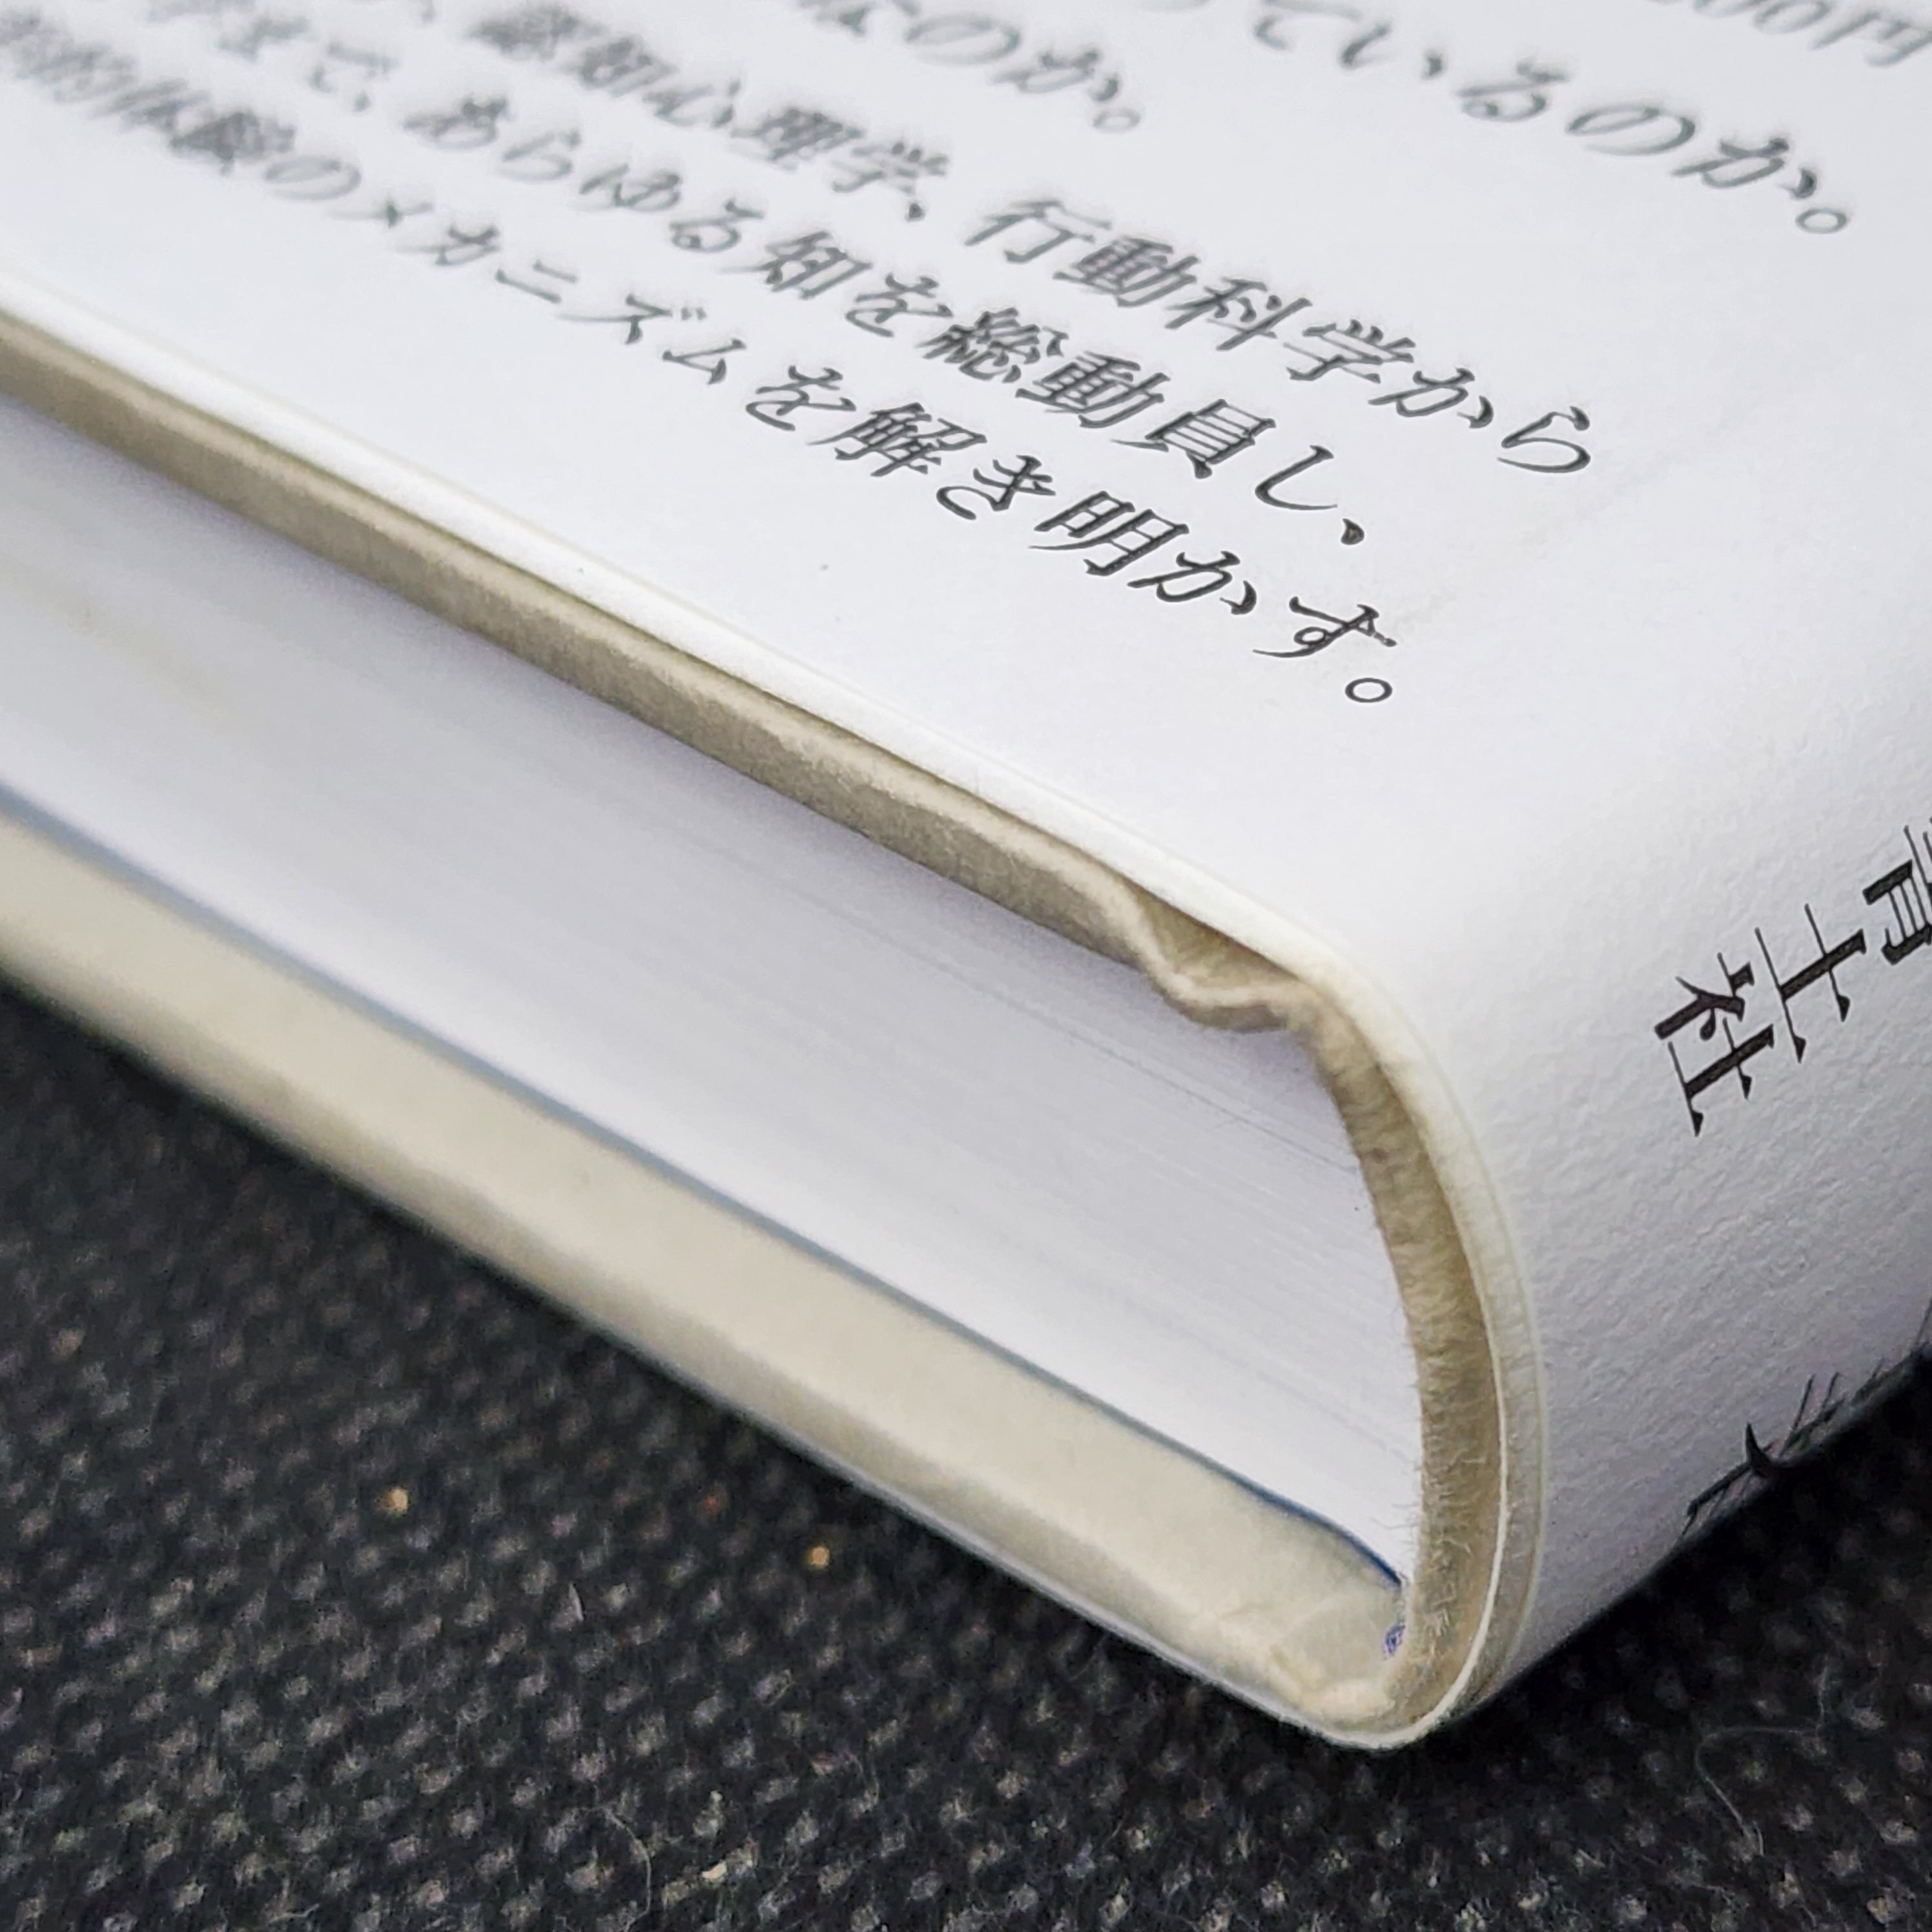 00円
っているのか。
なのか。
認知心理学、行動科学から
まで、あらゆる知を総動員し、
的体験のメカニズムを解き明かす。
青土社